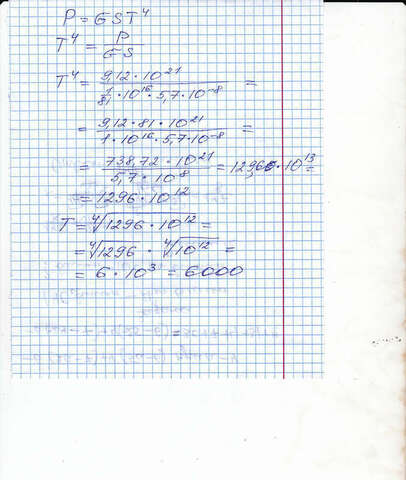 P = σST⁴
T⁴ = P / σS
T⁴ = 9,12 · 10²¹ / 1/81 · 10¹⁶ · 5,7 · 10⁻⁸ =
= 9,12 · 81 · 10²¹ / 1 · 10¹⁶ · 5,7 · 10⁻⁸ =
= 738,72 · 10²¹ / 5,7 · 10⁻⁸ = 129,6 · 10¹³ =
= 1296 · 10¹²
T = ⁴√1296 · 10¹² =
= ⁴√1296 · ⁴√10¹² =
= 6 · 10³ = 6000